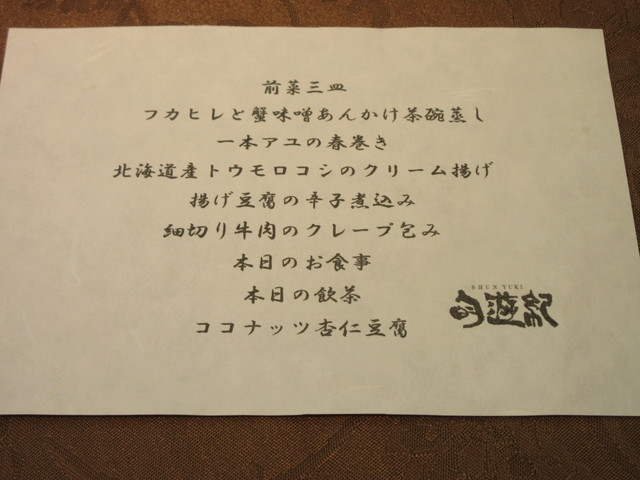 前菜三皿
フカヒレと蟹味噌あんかけ茶碗蒸し
一本アユの春巻き
北海道産トウモロコシのクリーム揚げ
揚げ豆腐の辛子煮込み
細切り牛肉のクレープ包み
本日のお食事
本日の飲茶
ココナッツ杏仁豆腐
SHUN YUKI
旬遊紀